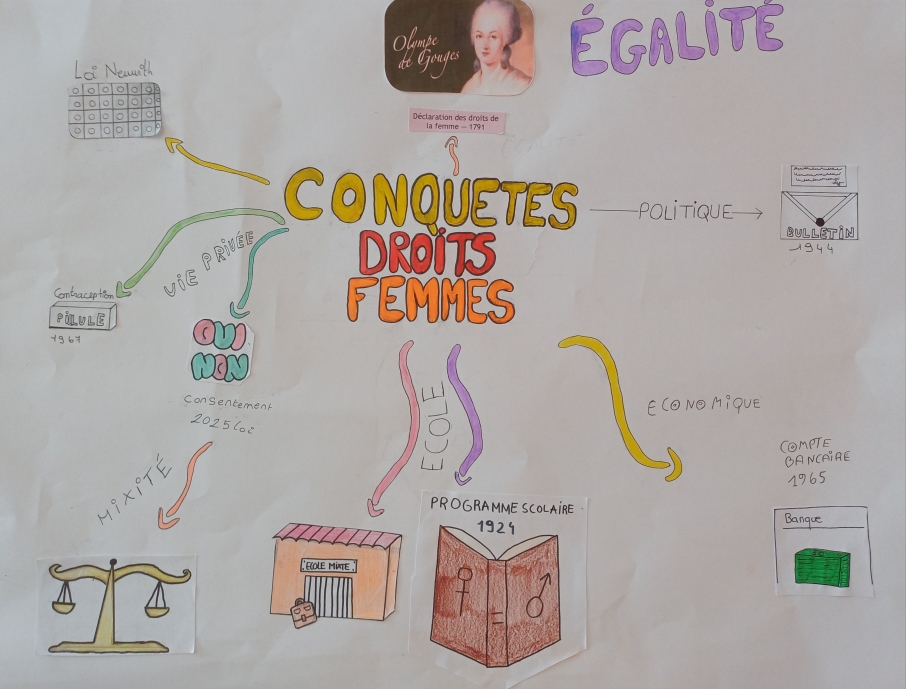 Olympe
de Gouges
ÉGALITÉ
Déclaration des droits de
la femme – 1791
Loi Neuwith
CONQUETES
DROITS
FEMMES
POLITIQUE
BULLETIN
1944
VIE PRIVÉE
Contraception
PILULE
1967
OUI
NON
Consentement
2025 Loi
MIXITÉ
ECOLE
ECONOMIQUE
COMPTE
BANCAIRE
1965
Banque
ECOLE MIXTE
PROGRAMME SCOLAIRE
1924